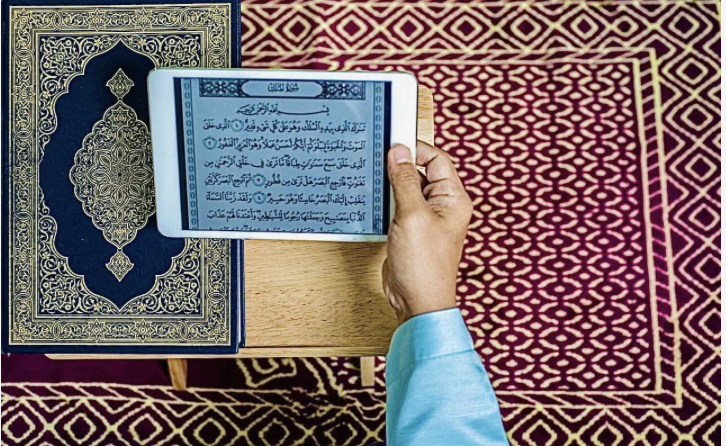 سُورَةُ الْمُلْكِ
بِسْمِ اللَّهِ الرَّحْمَٰنِ الرَّحِيمِ
تَبَارَكَ الَّذِي بِيَدِهِ الْمُلْكُ وَهُوَ عَلَىٰ كُلِّ شَيْءٍ قَدِيرٌ ١ الَّذِي خَلَقَ
الْمَوْتَ وَالْحَيَاةَ لِيَبْلُوَكُمْ أَيُّكُمْ أَحْسَنُ عَمَلًا وَهُوَ الْعَزِيزُ الْغَفُورُ ٢
الَّذِي خَلَقَ سَبْعَ سَمَاوَاتٍ طِبَاقًا مَّا تَرَىٰ فِي خَلْقِ الرَّحْمَٰنِ مِن
تَفَاوُتٍ فَارْجِعِ الْبَصَرَ هَلْ تَرَىٰ مِن فُطُورٍ ٣ ثُمَّ ارْجِعِ الْبَصَرَ كَرَّتَيْنِ
يَنقَلِبْ إِلَيْكَ الْبَصَرُ خَاسِئًا وَهُوَ حَسِيرٌ ٤ وَلَقَدْ زَيَّنَّا السَّمَاءَ
الدُّنْيَا بِمَصَابِيحَ وَجَعَلْنَاهَا رُجُومًا لِّلشَّيَاطِينِ وَأَعْتَدْنَا لَهُمْ عَذَابَ